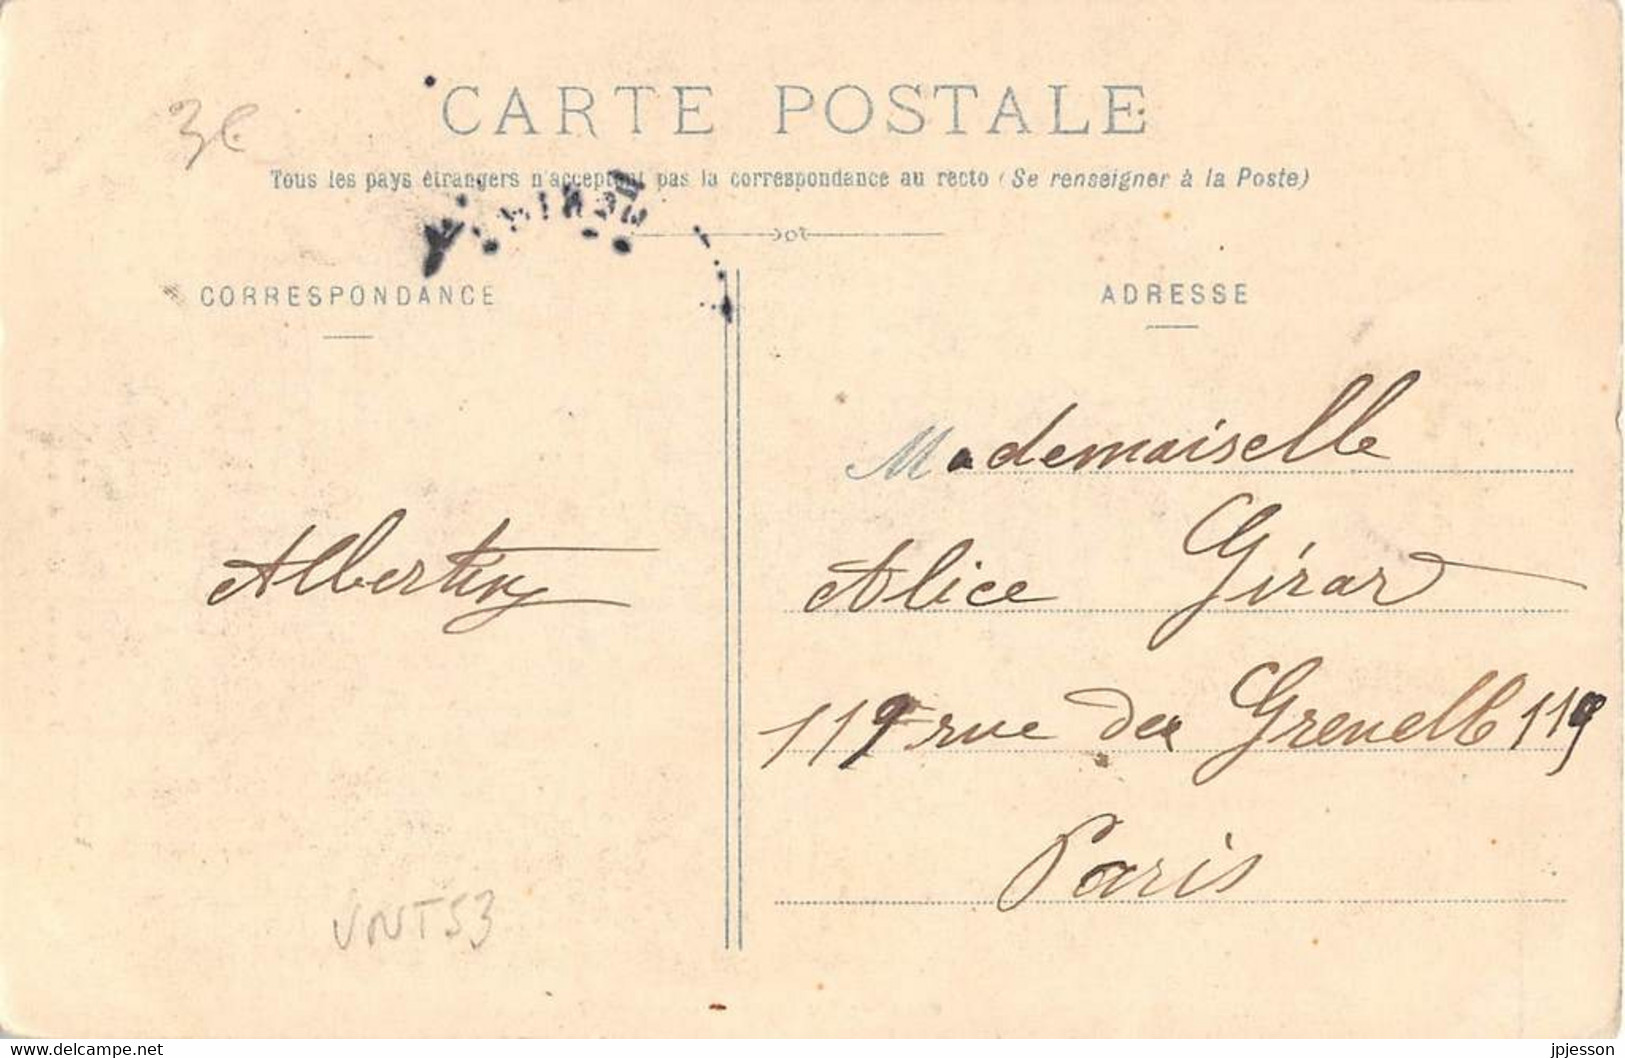 3€
CARTE POSTALE
Tous les pays étrangers n'acceptent pas la correspondance au recto (Se renseigner à la Poste)
CORRESPONDANCE
ADRESSE
Mademoiselle
Alice Girard
119 rue de Grenelle 119
Paris
VNT53
www.delcampe.net
jpjesson